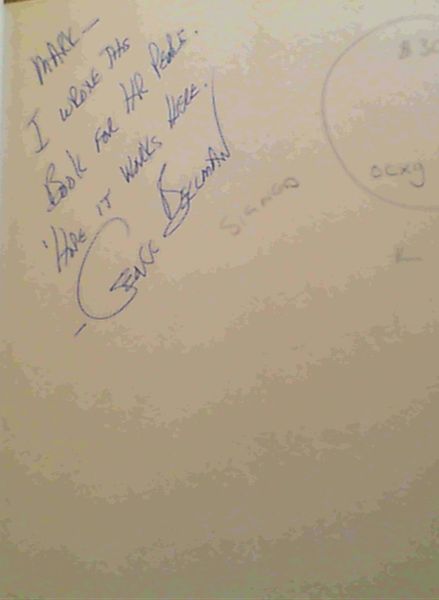 MARK —
I WROTE THIS
BOOK FOR HR PEOPLE.
'HOPE IT WORKS HERE.
— GEOFF BELLMAN
SIGNED
ocxg